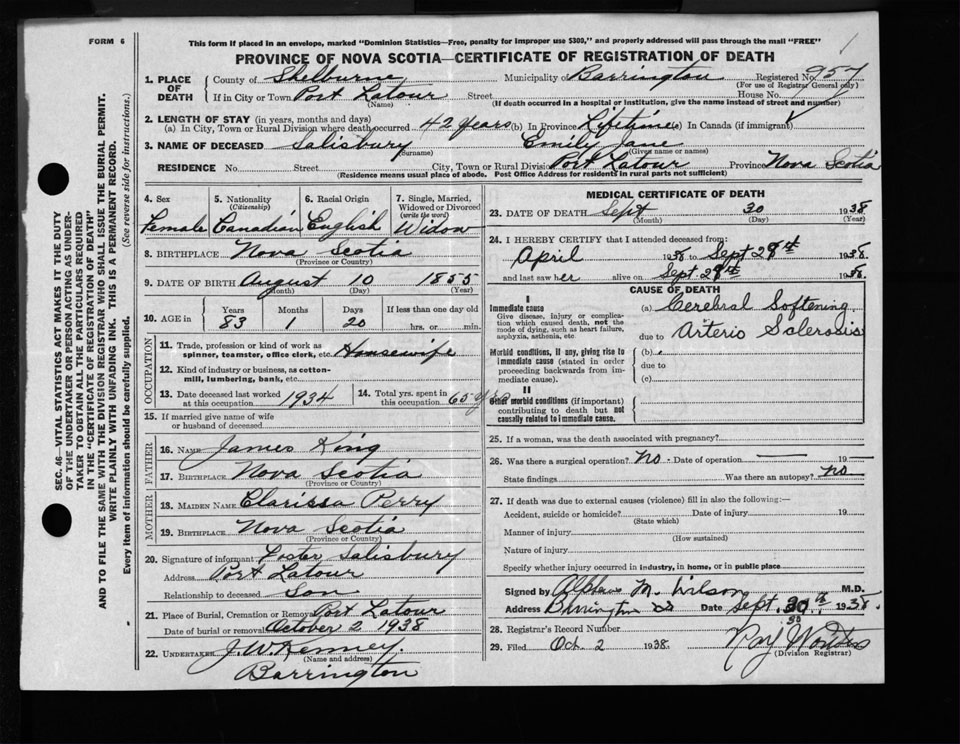 FORM 6
This form if placed in an envelope, marked "Dominion Statistics—Free, penalty for improper use $300," and properly addressed will pass through the mail "FREE"
1
PROVINCE OF NOVA SCOTIA—CERTIFICATE OF REGISTRATION OF DEATH
1. PLACE OF DEATH
County of Shelburne Municipality of Barrington Registered No. 957
(For use of Registrar General only)
If in City or Town Port Latour Street House No.
(Name) (If death occurred in a hospital or institution, give the name instead of street and number)
2. LENGTH OF STAY (in years, months and days)
(a) In City, Town or Rural Division where death occurred 42 years (b) In Province Lifetime (c) In Canada (if immigrant)
3. NAME OF DECEASED Salisbury Emily Jane
(Surname) (Given name or names)
RESIDENCE No. Street City, Town or Rural Division Port Latour Province Nova Scotia
(Residence means usual place of abode. Post Office Address for residents in rural parts not sufficient)
SEC. 46—VITAL STATISTICS ACT MAKES IT THE DUTY
OF THE UNDERTAKER OR PERSON ACTING AS UNDER-
TAKER TO OBTAIN ALL THE PARTICULARS REQUIRED
IN THE "CERTIFICATE OF REGISTRATION OF DEATH"
AND TO FILE THE SAME WITH THE DIVISION REGISTRAR WHO SHALL ISSUE THE BURIAL PERMIT.
WRITE PLAINLY WITH UNFADING INK. THIS IS A PERMANENT RECORD.
Every item of information should be carefully supplied. (See reverse side for instructions.)
4. Sex 5. Nationality (Citizenship) 6. Racial Origin 7. Single, Married, Widowed or Divorced (write the word)
Female Canadian English Widow
8. BIRTHPLACE Nova Scotia
(Province or Country)
9. DATE OF BIRTH August 10 1855
(Month) (Day) (Year)
10. AGE in Years Months Days If less than one day old
83 1 20 hrs. or min.
OCCUPATION
11. Trade, profession or kind of work as spinner, teamster, office clerk, etc. Housewife
12. Kind of industry or business, as cotton-mill, lumbering, bank, etc.
13. Date deceased last worked at this occupation 1934
14. Total yrs. spent in this occupation 65 yrs
15. If married give name of wife or husband of deceased
FATHER
16. NAME James King
17. BIRTHPLACE Nova Scotia
(Province or Country)
MOTHER
18. MAIDEN NAME Clarissa Perry
19. BIRTHPLACE Nova Scotia
(Province or Country)
20. Signature of informant Foster Salisbury
Address Port Latour
Relationship to deceased Son
21. Place of Burial, Cremation or Removal Port Latour
Date of burial or removal October 2 1938
22. UNDERTAKER J. W. Kenney.
(Name and address)
Barrington
MEDICAL CERTIFICATE OF DEATH
23. DATE OF DEATH Sept 30 1938
(Month) (Day) (Year)
24. I HEREBY CERTIFY that I attended deceased from:
April 1938 to Sept 28th 1938
and last saw her alive on Sept. 29th 1938.
CAUSE OF DEATH
I
Immediate cause
Give disease, injury or complication which caused death, not the mode of dying, such as heart failure, asphyxia, asthenia, etc.
(a) Cerebral Softening
due to Arterio Sclerosis
Morbid conditions, if any, giving rise to immediate cause (stated in order proceeding backwards from immediate cause).
(b)
due to
(c)
II
Other morbid conditions (if important) contributing to death but not causally related to immediate cause.
25. If a woman, was the death associated with pregnancy?
26. Was there a surgical operation? No. Date of operation — 19—
State findings Was there an autopsy? no
27. If death was due to external causes (violence) fill in also the following:—
Accident, suicide or homicide? Date of injury 19
(State which)
Manner of injury
(How sustained)
Nature of injury
Specify whether injury occurred in industry, in home, or in public place
Signed by Alpheus M. Wilson M.D.
Address Barrington Date Sept. 30th 1938.
30
28. Registrar's Record Number
29. Filed Oct. 2 1938.
(Division Registrar)